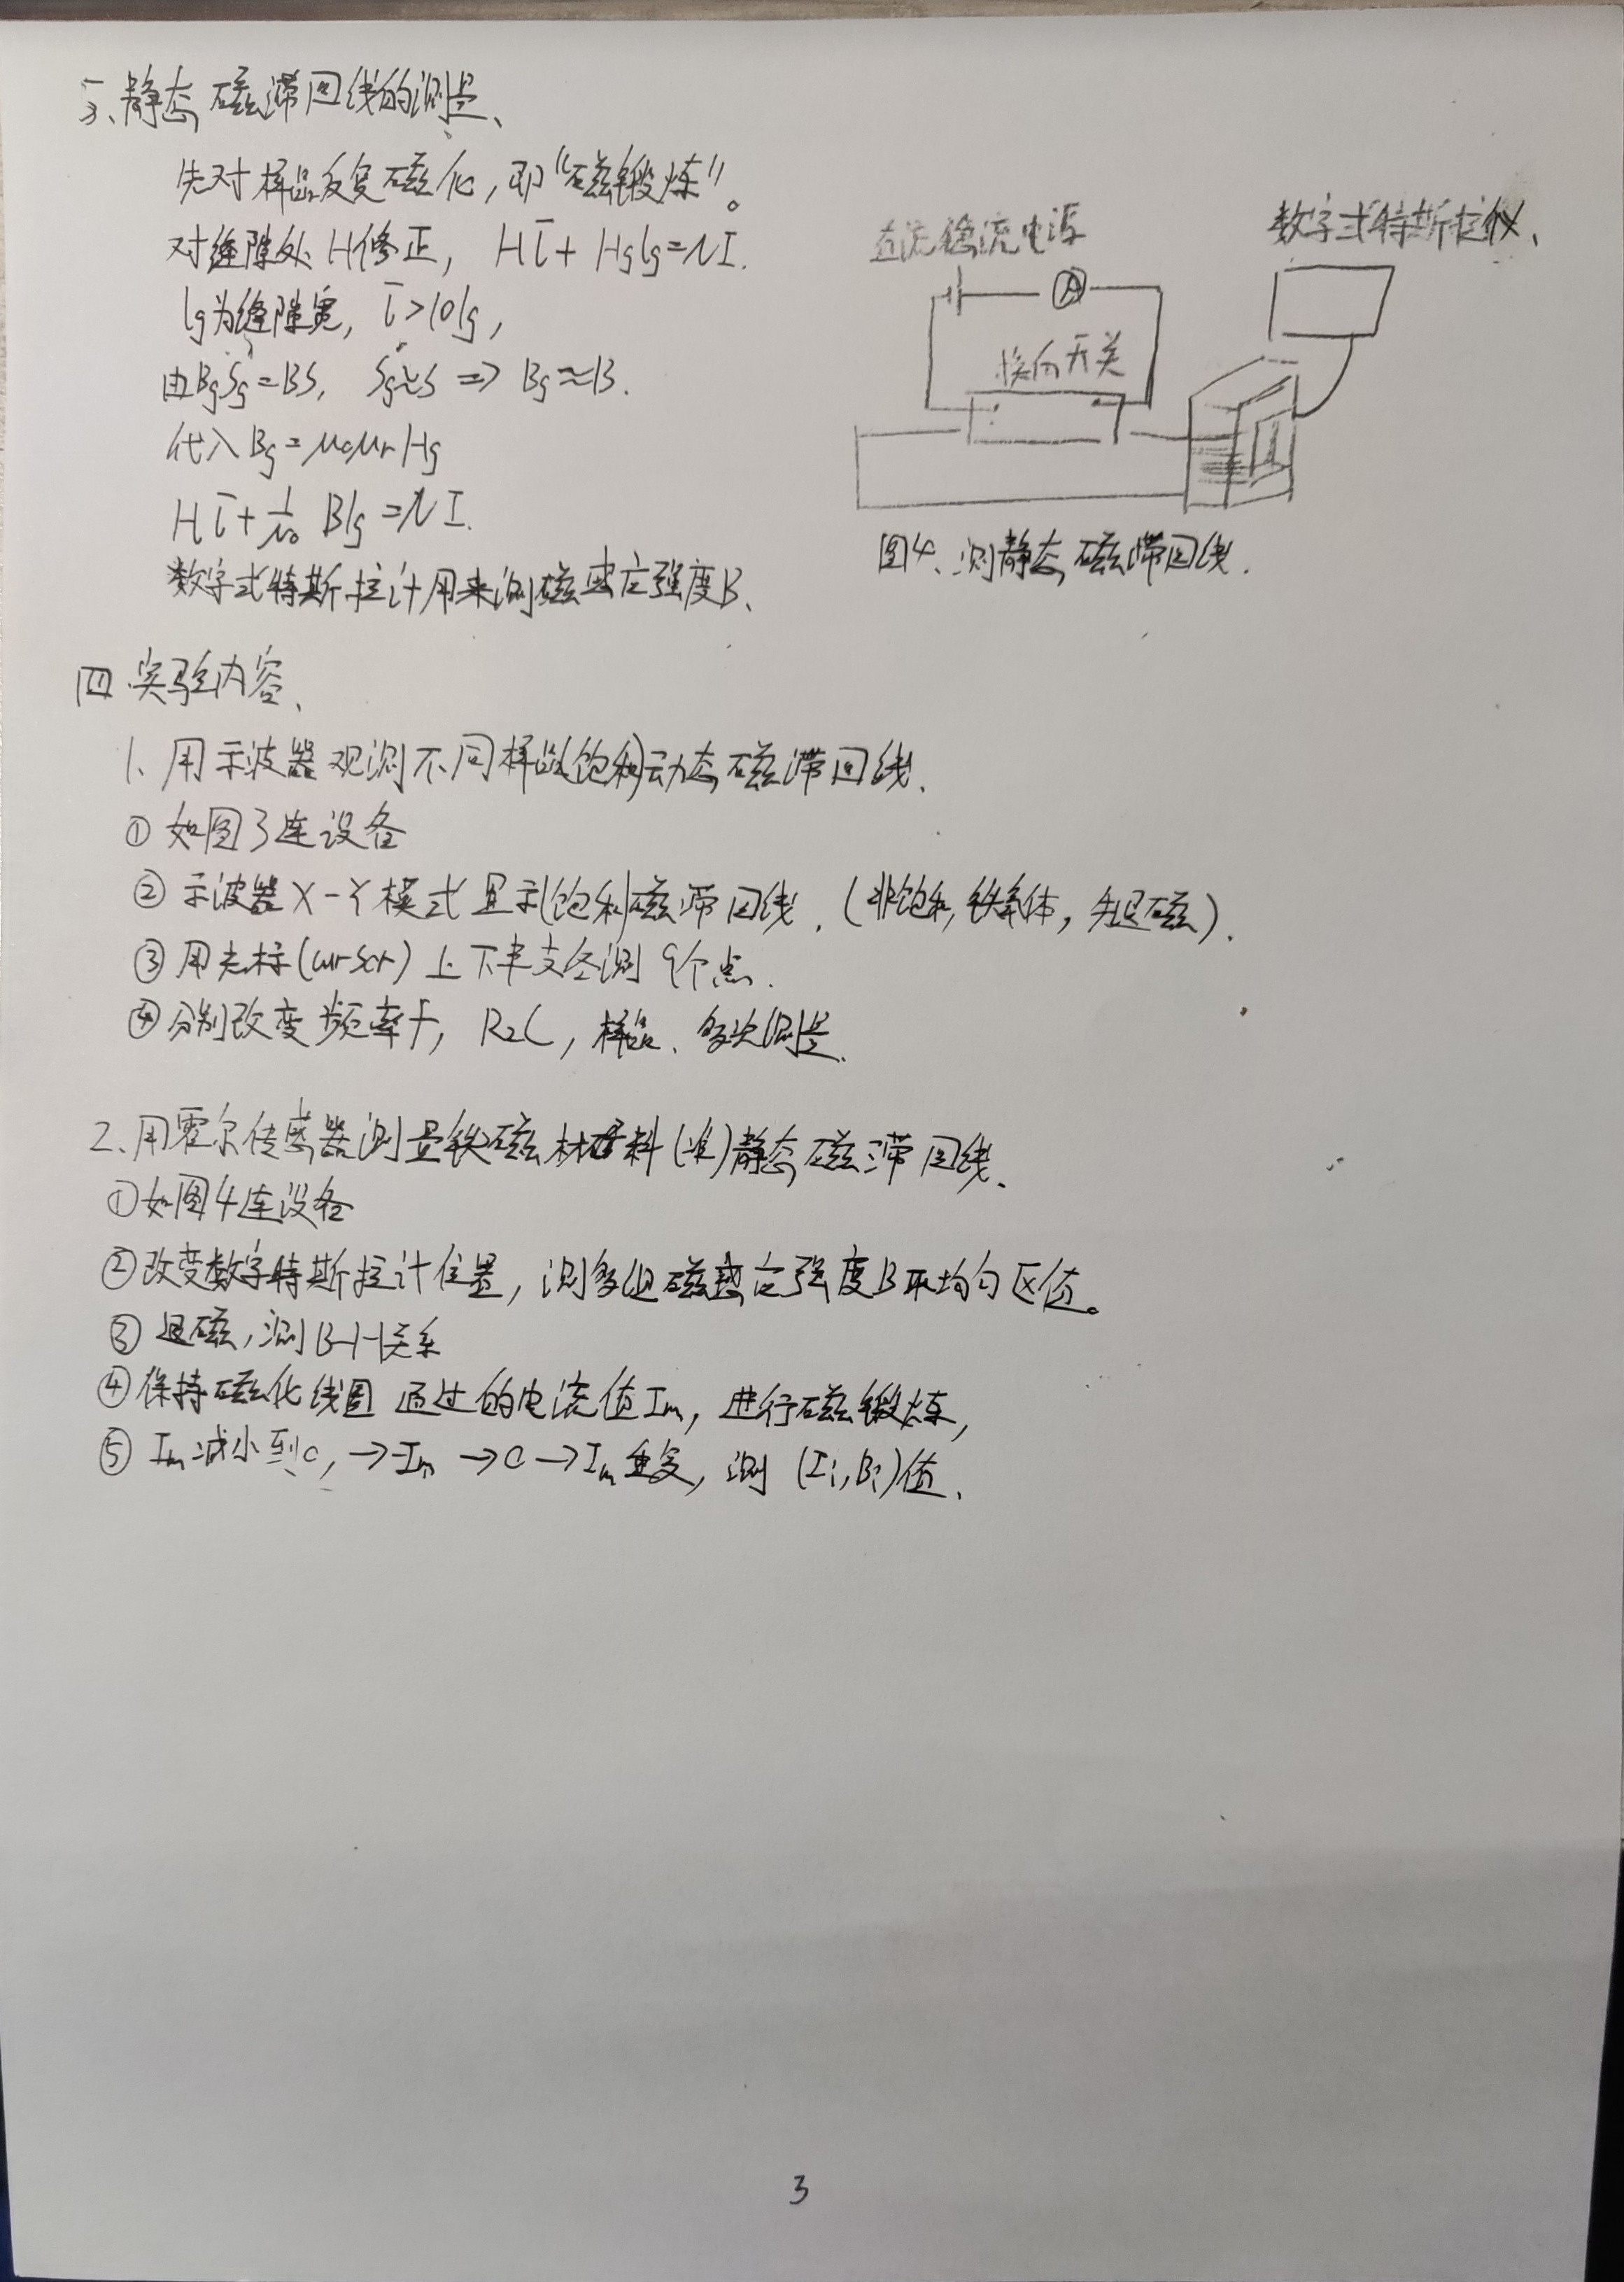 3、静态磁滞回线的测量、
先对样品反复磁化,即“磁锻炼”。
对缝隙处H修正, Hl̄+Hglg=NI.
lg为缝隙宽, l̄>10lg,
由BgSg=BS, Sg≈S ⇒ Bg≈B.
代入Bg=μ0μrHg
Hl̄+1/μ0 Blg=NI.
数字式特斯拉计用来测磁感应强度B、
直流稳流电源
数字式特斯拉仪、
A
换向开关
图4、测静态磁滞回线.
四.实验内容、
1、用示波器观测不同样品(饱和)动态磁滞回线.
① 如图3连设备
② 示波器X-Y模式显示(饱和)磁滞回线.(非饱和,铁氧体,先退磁).
③ 用光标(cursor)上下半支各测9个点.
④ 分别改变频率f, R2C, 样品、多次测量.
2、用霍尔传感器测量铁磁材料(准)静态磁滞回线、
①如图4连设备
②改变数字特斯拉计位置,测多组磁感应强度B取均匀区值。
③ 退磁,测B-H关系
④ 保持磁化线圈通过的电流值Im, 进行磁锻炼,
⑤ Im减小到0,→-Im→0→Im重复, 测(Ii,Bi)值、
3